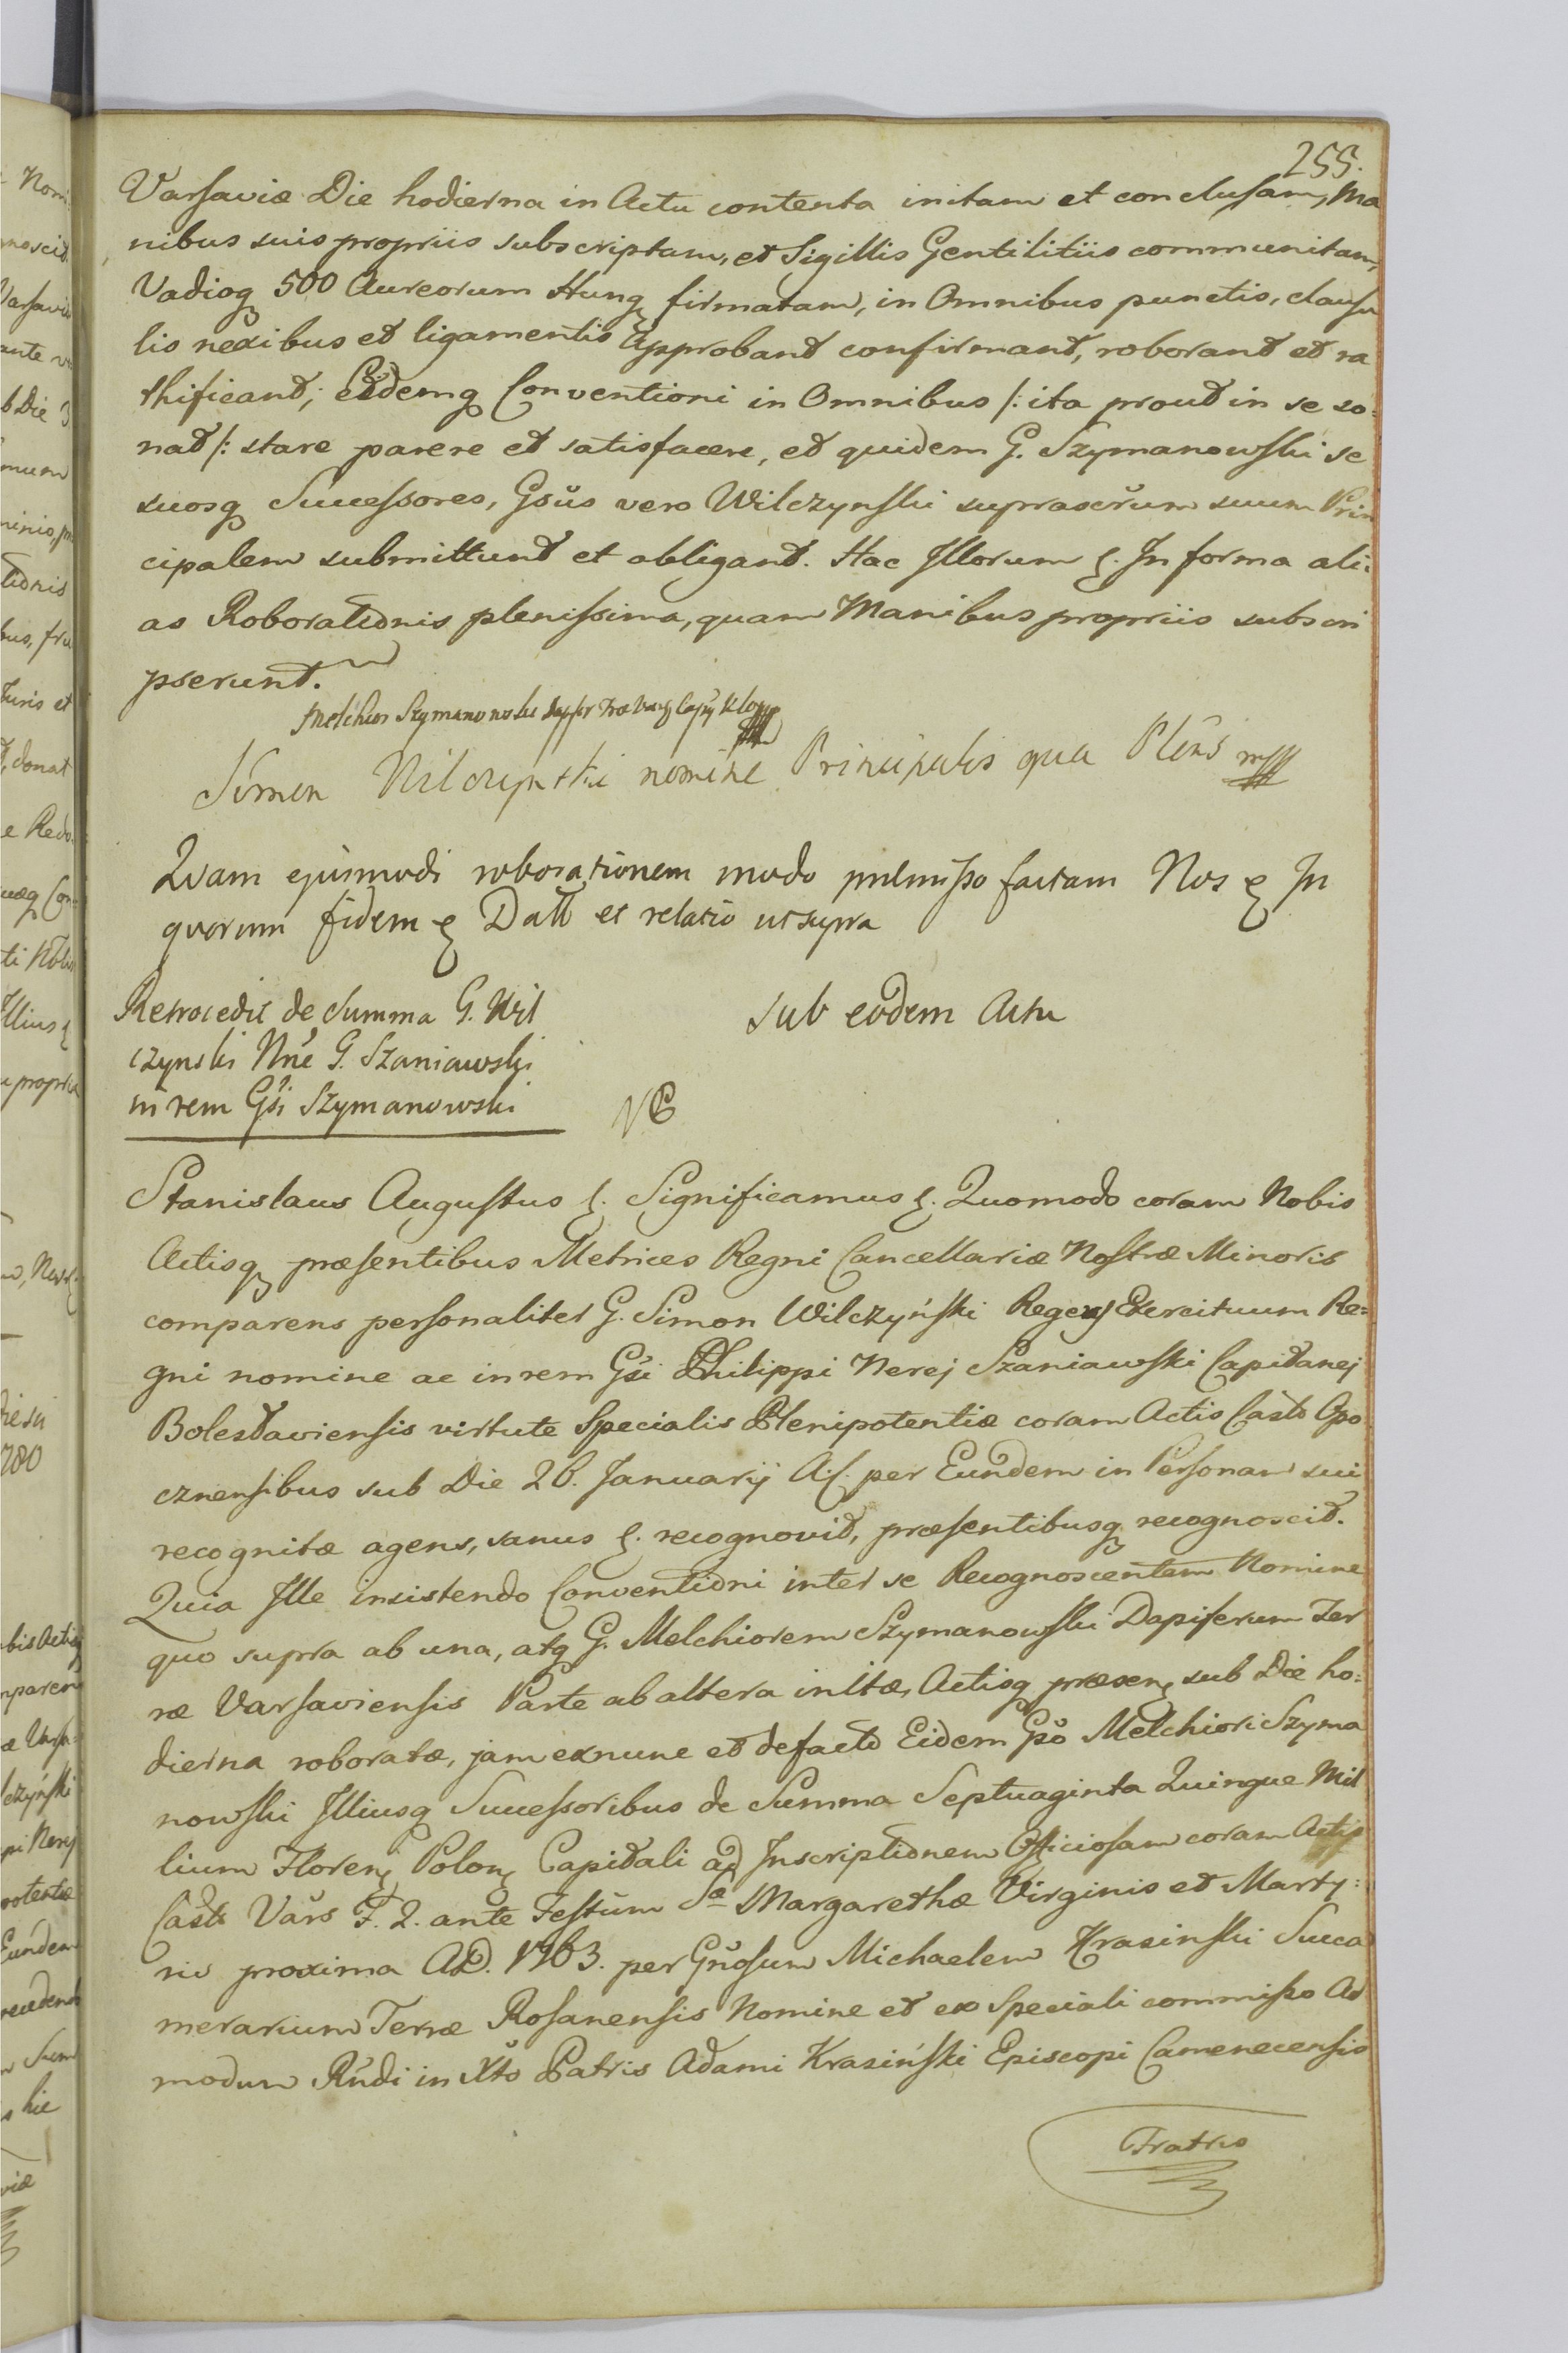 255.
Varsaviæ Die hodierna in Actu contenta initam et conclusam, Ma
nibus suis propriis subscriptam, et Sigillis Gentilitiis communitam,
Vadioq 500 Aureorum Hung firmatam, in Omnibus punctis, clausu
lis nexibus et ligamentis Approbant confirmant, roborant et ra
thificant; Eidemq Conventioni in Omnibus /: ita prout in se so:
nat /: stare parere et satisfacere, et quidem G. Szymanowski se
suosq Successores, Gsus vero Wilczynski suprascrum suum Prin
cipalem submittunt et obligant. Hac Illorum &. In forma ali:
as Roborationis plenissima, quam Manibus propriis subscri
pserunt.
Melchior Szymanowski Dapifer Træ Vars
Simon Wilczynski nomine Principalis qua Plens mpp
Quam ejusmodi roborationem modo præmisso factam Nos & In
quorum fidem & Datt et relatio ut supra
Retrocedit de Summa G. Wil
czynski Nne G. Szaniawski
in rem Gsi Szymanowski
Sub eodem Actu
Stanislaus Augustus &. Significamus &. Quomodo coram Nobis
Actisq præsentibus Metrices Regni Cancellariæ Nostræ Minoris
comparens personaliter G. Simon Wilczyński Regens Exercituum Re=
gni nomine ac in rem Gsi Philippi Nerej Szaniawski Capitanej
Boleslaviensis virtute Specialis Plenipotentiæ coram Actis Castr Opo
cznensibus sub Die 26. Januarij A.c. per Eundem in Personam sui
recognitæ agens, sanus &. recognovit, præsentibusq recognoscit.
Quia Ille insistendo Conventioni inter se Recognoscentem Nomine
quo supra ab una, atq G. Melchiorem Szymanowski Dapiferum Ter
ræ Varsaviensis Parte ab altera initæ, Actisq præsen sub Die ho:
dierna roboratæ, jam ex nunc et de facto Eidem Gso Melchiori Szyma
nowski Illiusq Successoribus de Summa Septuaginta Quinque Mil
lium Floren Polon Capitali ad Inscriptionem Officiosam coram Actis
Castr Vars F. 2. ante Festum Sæ Margarethæ Virginis et Marty:
ris proxima AD. 1763. per Gnosum Michaelem Krasinski Succa
merarium Terræ Rosanensis Nomine et ex Speciali commisso Ad
modum Rndi in Xto Patris Adami Krasiński Episcopi Camenecensis
Fratris